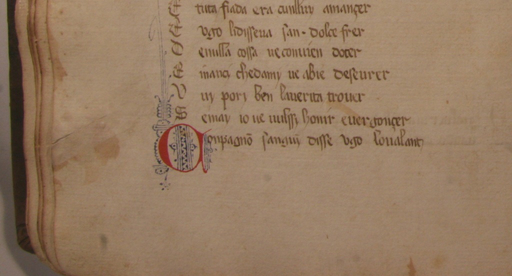 tuta fiada era cunssiur amançer
E ugo lidisseua san dolce frer
E nulla cossa ne conuien doter
E inanci chedami ue abie deseurer
V ui pori ben lauerita trouer
S emay io ue uulssi honir e uergonçer
Conpagnõ sanguī disse ugo loualant